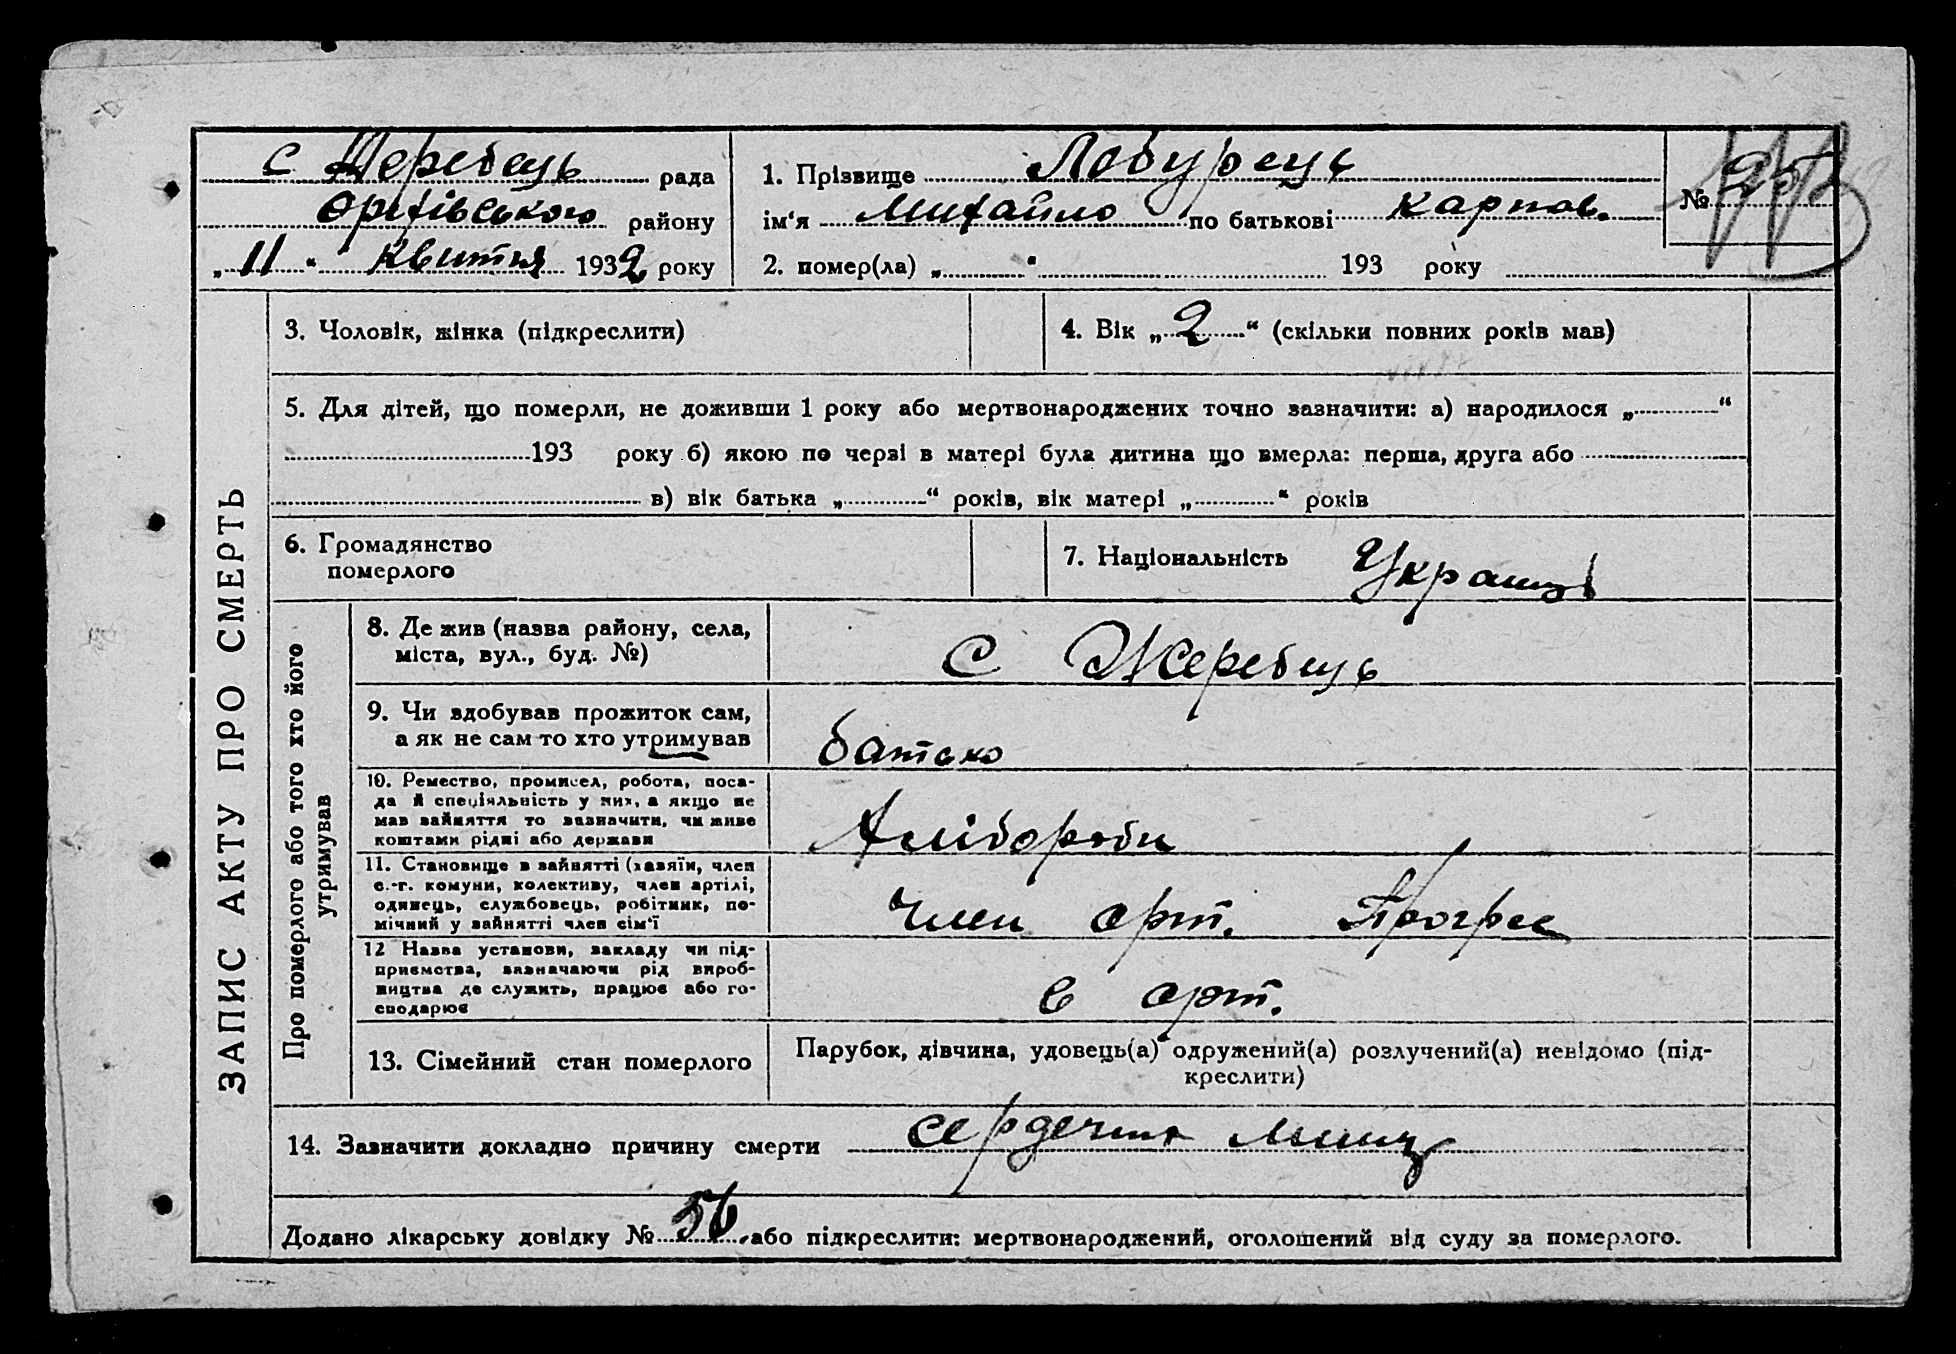 с Жеребець рада
Оріхівського району
„ 11 “ Квітня 1932 року
1. Прізвище Лобурець
ім‘я Михайло по батькові Карпов.
№
2. помер(ла) „ “ 193 року
3. Чоловік, жінка (підкреслити)
4. Вік „ 2 “ (скільки повних років мав)
5. Для дітей, що померли, не доживши 1 року або мертвонароджених точно зазначити: а) народилося „ “
193 року б) якою по черзі в матері була дитина що вмерла: перша, друга або
в) вік батька „ “ років, вік матері „ “ років
6. Громадянство
померлого
7. Національність Українц
ЗАПИС АКТУ ПРО СМЕРТЬ
Про померлого або того хто його
утримував
8. Де жив (назва району, села,
міста, вул., буд. №)
с Жеребець
9. Чи здобував прожиток сам,
а як не сам то хто утримував
батько
10. Ремество, промисел, робота, поса-
да й спеціяльність у них, а якщо не
мав зайняття то зазначити, чи живе
коштами рідні або держави
Хлібороби
11. Становище в зайнятті (хазяїн, член
с.-г. комуни, колективу, член артілі,
одинець, службовець, робітник, по-
мічний у зайнятті член сім‘ї
член арт. Прогрес
12 Назва установи, закладу чи під-
приємства, зазначаючи рід вироб-
ництва де служить, працює або го-
сподарює
в арт.
13. Сімейний стан померлого
Парубок, дівчина, удовець(а) одружений(а) розлучений(а) невідомо (під-
креслити)
14. Зазначити докладно причину смерти сердечна
Додано лікарську довідку № 56 або підкреслити: мертвонароджений, оголошений від суду за померлого.